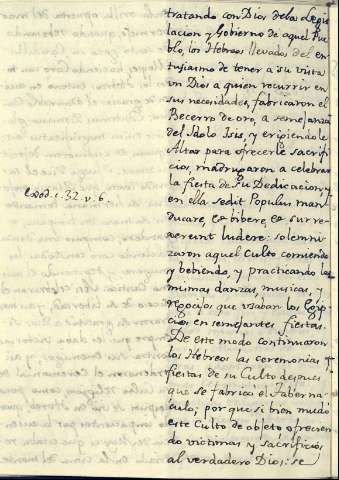 tratando con Dios dela Legis
lacion y Gobierno de aquel Pue
blo, los Hebreos llevados, del en
tusiasmo de tener a su vista
un Dios a quien recurrir en
sus necesidades, fabricaron el
Becerro de oro, a semejanza
del Idolo Isis, y erigiendole
Altar para ofrecerle sacrifi
cios, madrugaron a celebrar
la fiesta de su Dedicacion, y
en ella sedit Populus man
ducare, et bibere, et surre
xerunt ludere: solemni
zaron aquel Culto comiendo
y bebiendo, y practicando las
mismas danzas, musicas, y
regocijos que usaban los Egip
cios en semejantes fiestas.
De este modo continuaron
los Hebreos las ceremonias y
fiestas de su Culto despues
que se fabricó el Taberna
culo; por que si bien mudó
este Culto de objeto ofrecien
do victimas y sacrificios
al verdadero Dios: se
Exod. c. 32. v. 6.